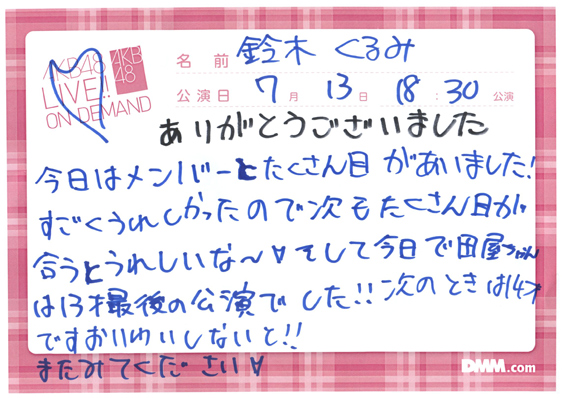 AKB48
LIVE!!
ON DEMAND
AKB
48
名前 鈴木 くるみ
公演日 7月 13日 18:30公演
ありがとうございました
今日はメンバーとたくさん目があいました!
すごくうれしかったので次もたくさん目が
合うとうれしいな〜 そして今日で田屋ちゃん
は13才最後の公演でした!!次のときは14才
ですおいわいしないと!!
またみてください
DMM.com